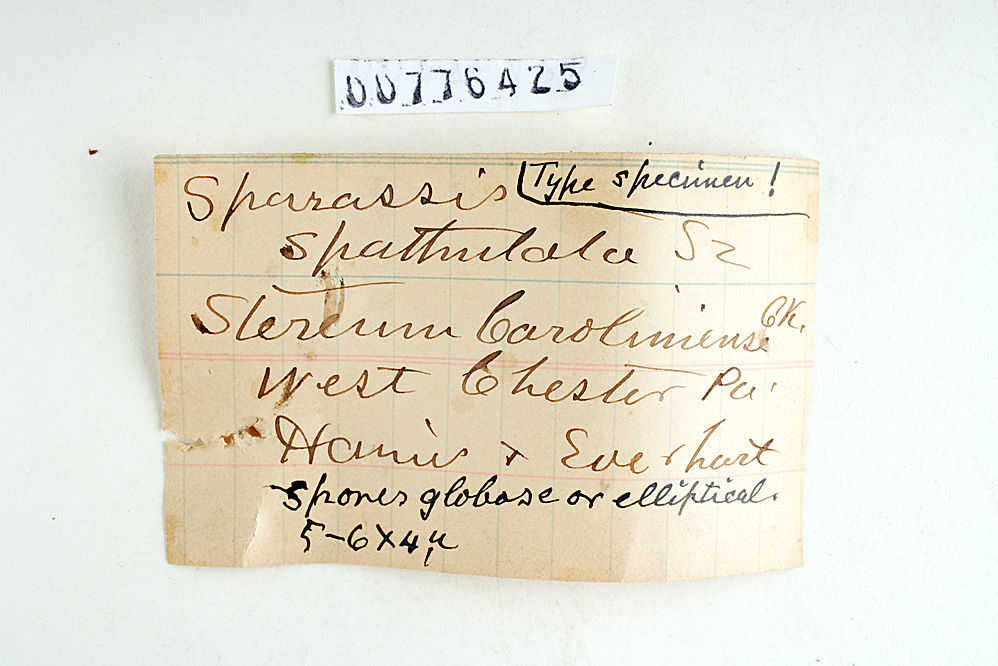 00776425
Sparassis Type specimen!
spathulata Sz
Stereum Caroliniense CK.
West Chester Pa.
Harris & Everhart
spores globose or elliptical.
5-6X4µ